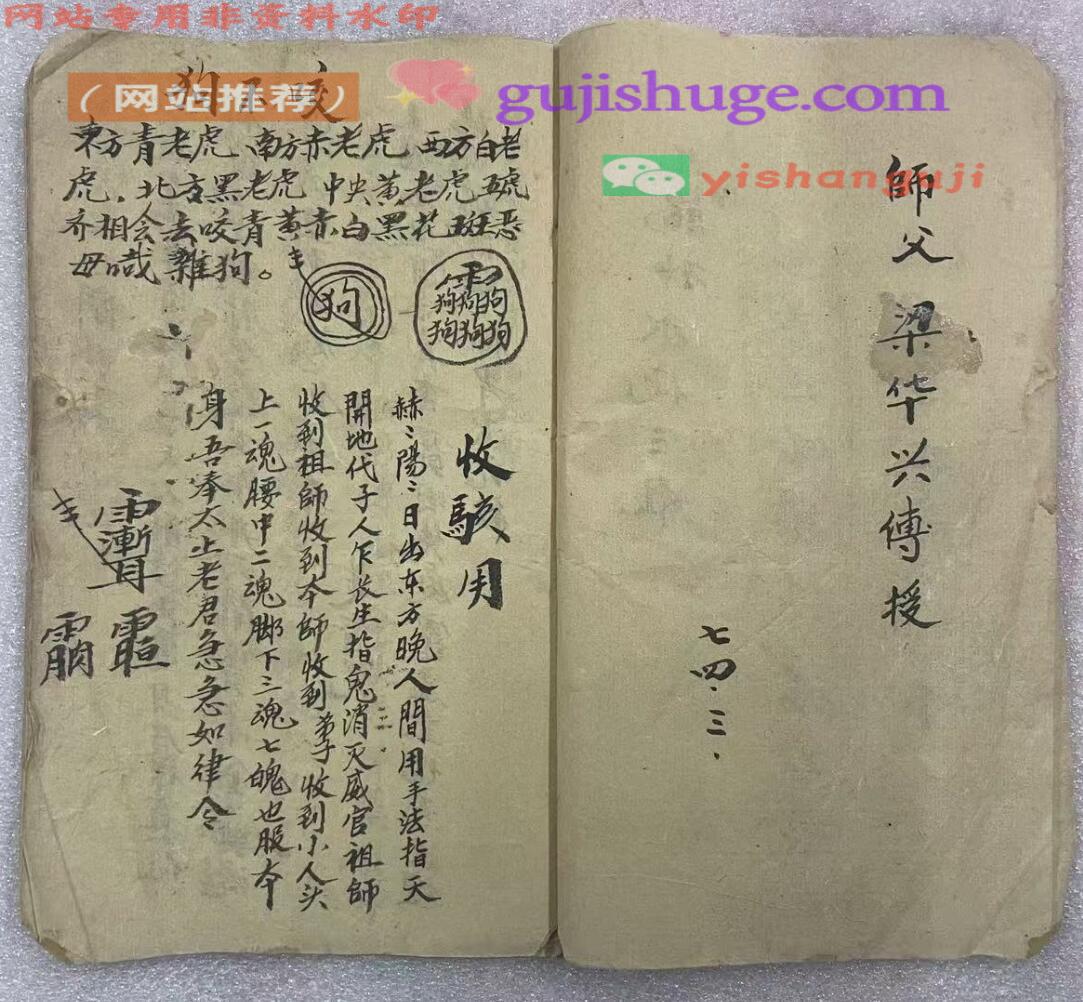 网站专用非资料水印
（网站推荐）
gujishuge.com
yishanguji
狗不咬
東方青老虎 南方赤老虎 西方白老
虎．北方黑老虎 中央黄老虎 五虎
齐相会去咬青黄赤白黑花斑恶
毋哦雜狗。
狗
狗狗狗
狗狗狗
收駭用
赫〻陽〻日出东方晚人間用手法指天
開地代子人乍长生指鬼消灭威官祖師
收到祖師收到本師收到弟子收到小人头
上一魂腰中二魂脚下三魂七魄也服本
身吾奉太上老君急急如律令
師父梁华兴傅授
七四．三．